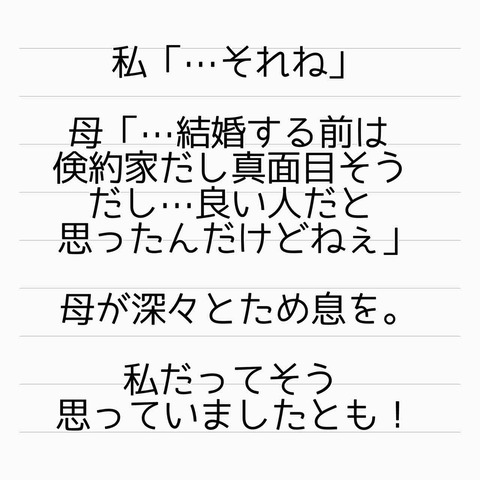 私「…それね」
母「…結婚する前は
倹約家だし真面目そう
だし…良い人だと
思ったんだけどねぇ」
母が深々とため息を。
私だってそう
思っていましたとも！